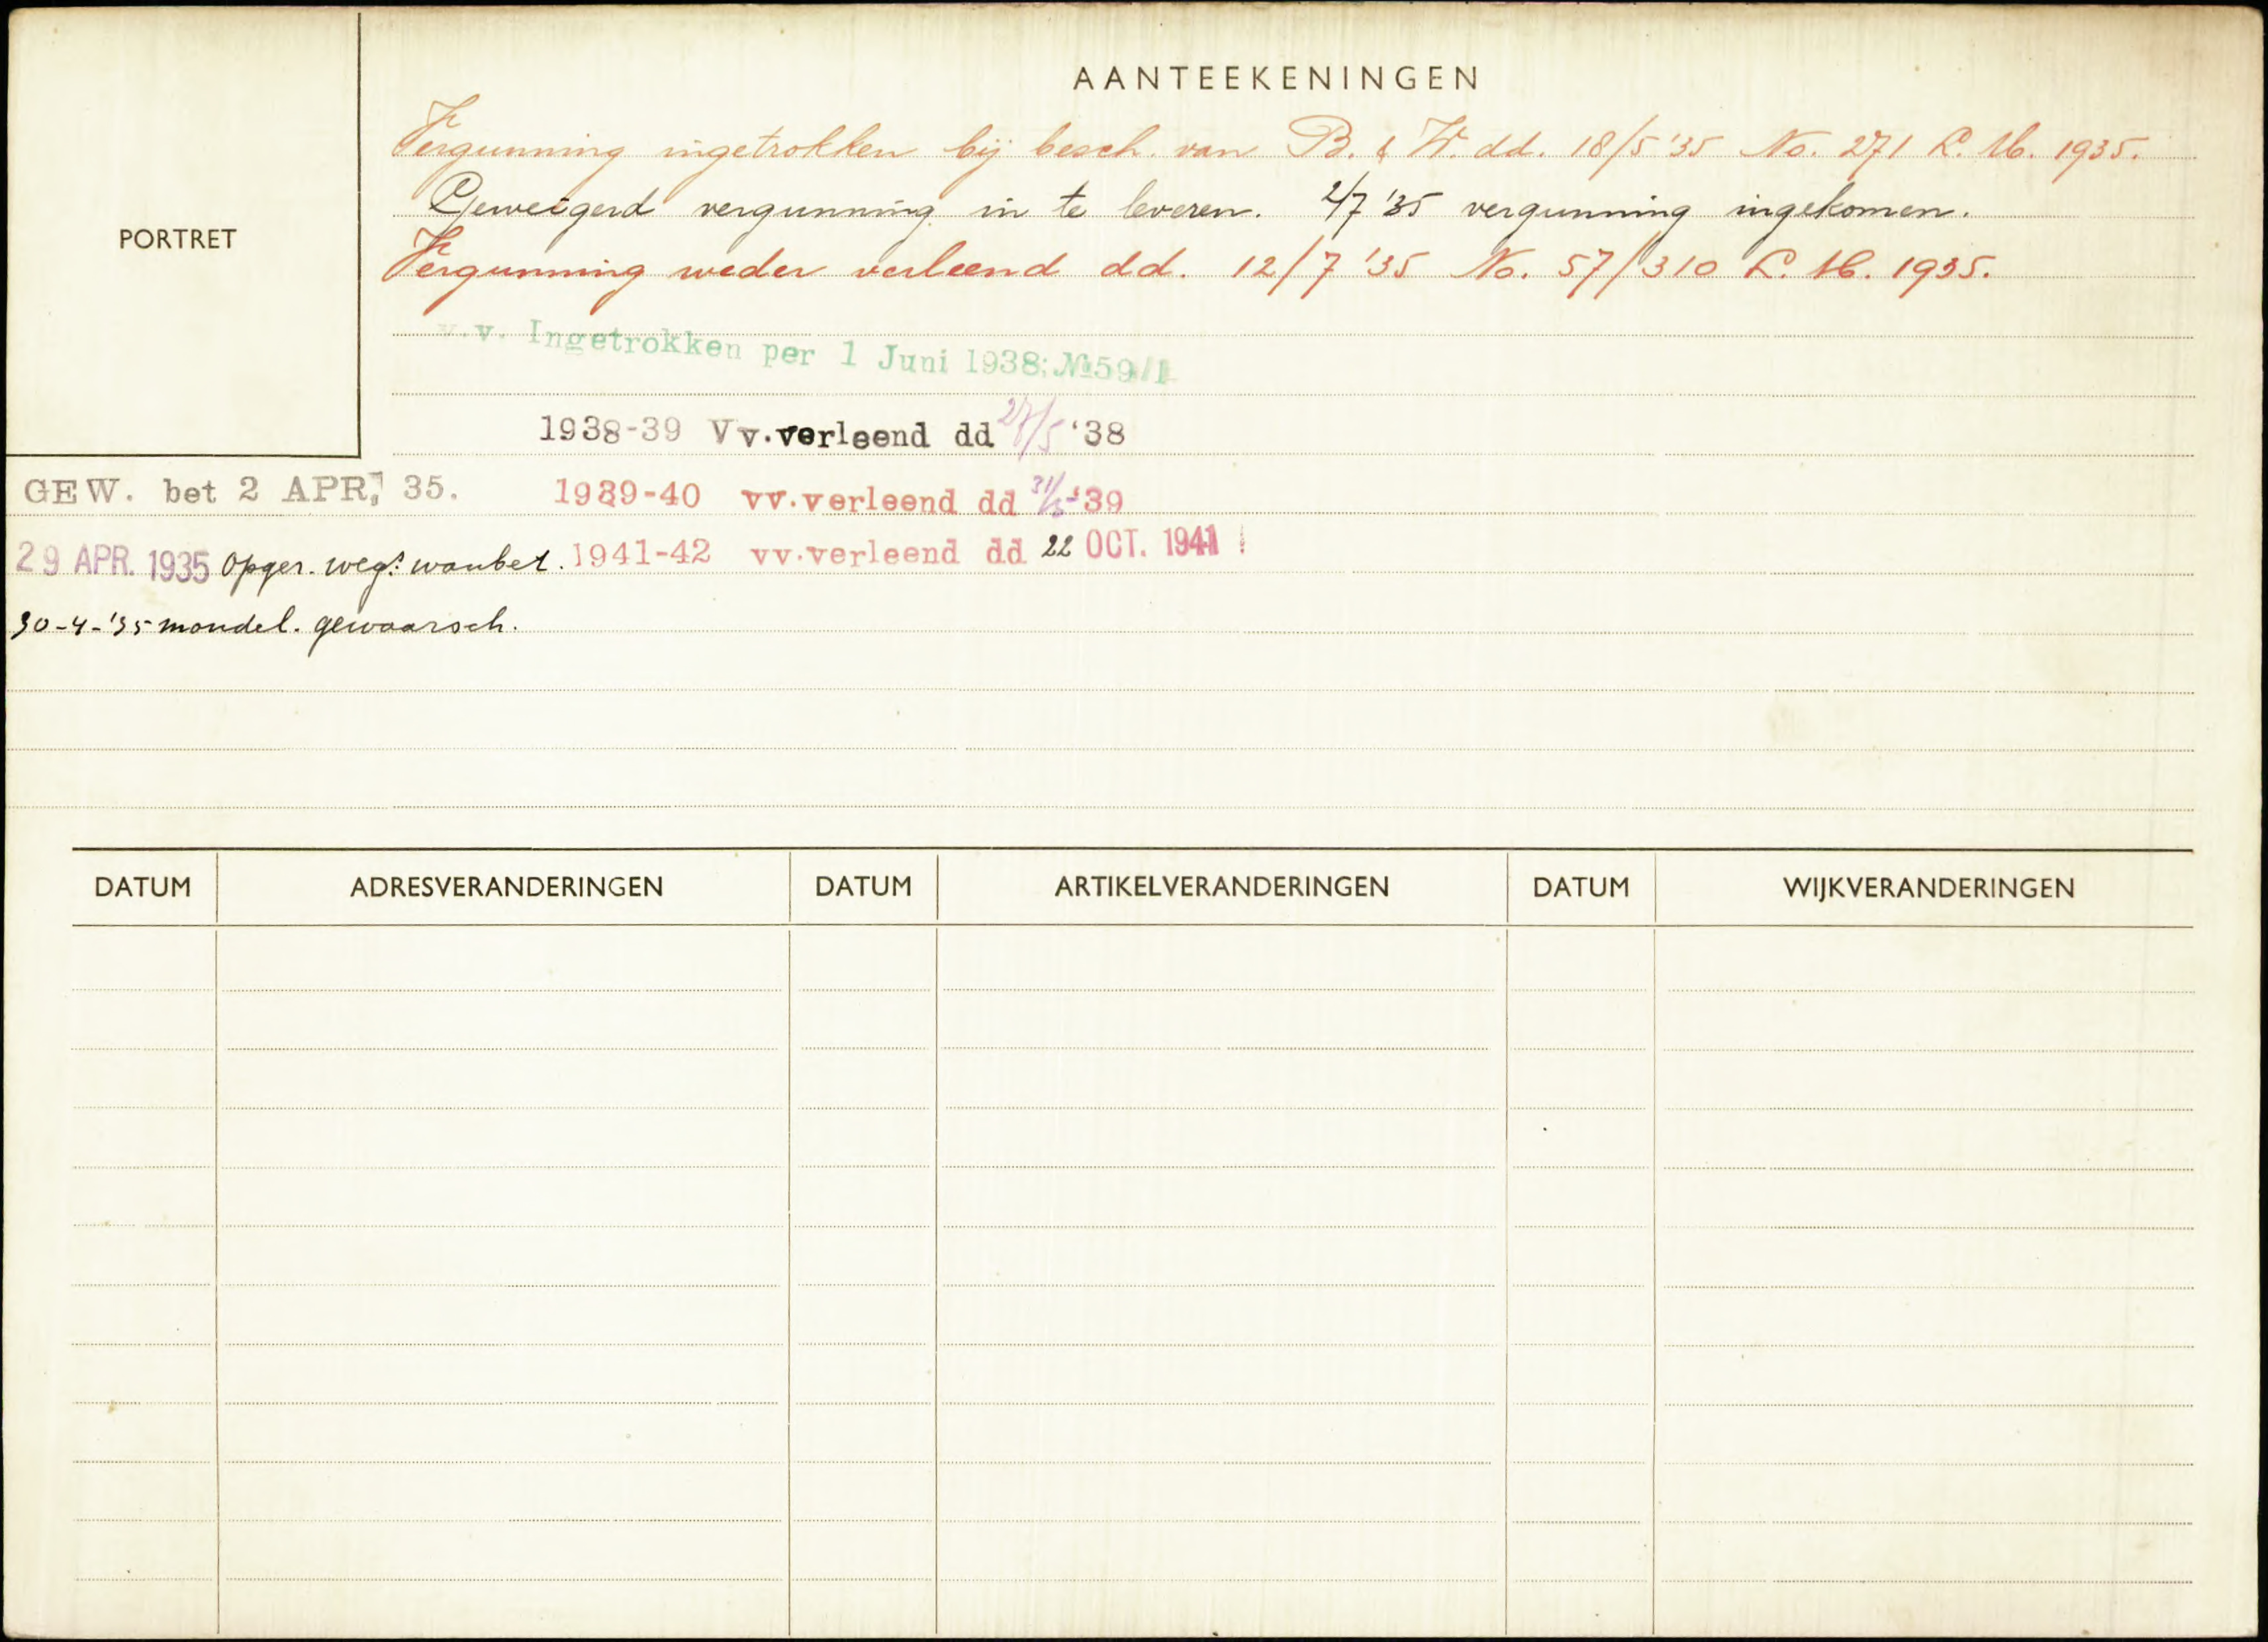 AANTEEKENINGEN
PORTRET
Vergunning ingetrokken bij besch. van B. & W. dd. 18/5 '35 No. 271 L. M. 1935.
Geweigerd vergunning in te leveren. 2/7 '35 vergunning ingekomen.
Vergunning weder verleend dd. 12/7 '35 No. 57/310 L. M. 1935.
v.v. Ingetrokken per 1 Juni 1938; №59/1
1938-39 Vv.verleend dd 27/5 '38
GEW. bet 2 APR. 35.
1939-40 vv.verleend dd 31/5 '39
29 APR. 1935 opger. weg. wanbet.
1941-42 vv.verleend dd 22 OCT. 1941
30-4-'35 mondel. gewaarsch.
DATUM ADRESVERANDERINGEN DATUM ARTIKELVERANDERINGEN DATUM WIJKVERANDERINGEN